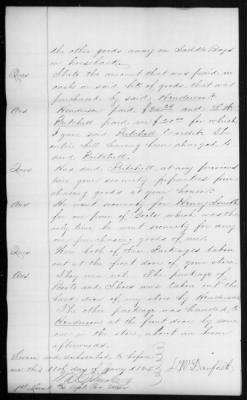 the other goods away on Saddle Bags
on horseback.
Ques State the amount that was paid in
cash on said bill of goods that was
purchased by said Henderson &
Ans Henderson paid $20.00 and
Pritchell paid me $20.00 for which
I gave said Pritchell Credit the
entire bill having been charged to
said Pritchell.
Ques Has said Pritchell at any previous
time gave security for parties pur
chasing goods at your house?
Ans He went security for Henry Smith
for one pair of Boots which was the
only time he went security for any
one purchasing goods of me.
Ques Were both of these Packages taken
out at the front door of your store
Ans They was not. The package of
Boots and Shoes was taken out the
back door of my store by Henderson
The other package was handed to
Henderson at the front door by some
one in the store about an hour
afterwards.
Sworn and subscribed to before
me this 11th day of Jany 1865
J. W. Danforth